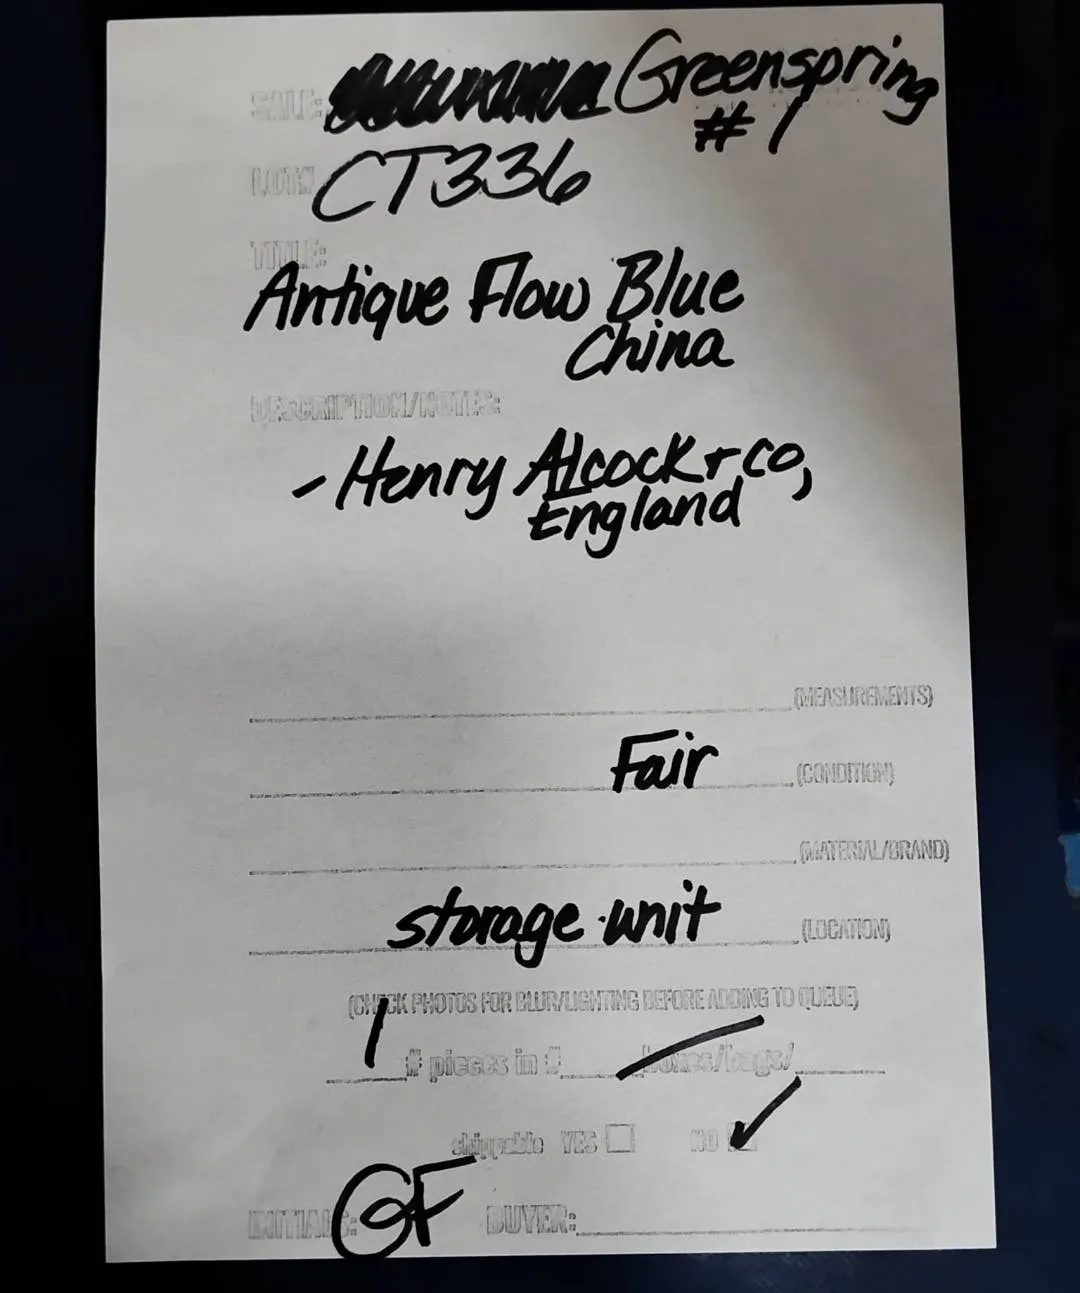 SALE: Greenspring
#1
LOT#: CT336
TITLE:
Antique Flow Blue
China
DESCRIPTION/NOTES:
- Henry Alcock + co,
England
(MEASUREMENTS)
Fair (CONDITION)
(MATERIAL/BRAND)
storage unit (LOCATION)
(CHECK PHOTOS FOR BLUR/LIGHTING BEFORE ADDING TO QUEUE)
1 # pieces in # boxes/bags/
shippable YES NO ✓
INITIALS: GF BUYER: